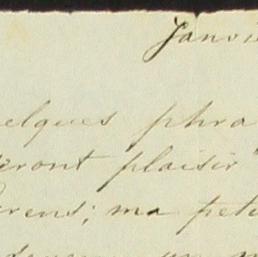 Janvi
elques phra
eront plaisir "
rens; ma peti